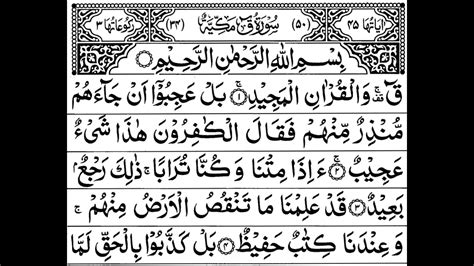 اٰيَاتُهَا ٤٥ (٥٠) سُوْرَةُ قٓ مَكِّيَّةٌ (٣٤) رُكُوْعَاتُهَا ٣
بِسْمِ اللّٰهِ الرَّحْمٰنِ الرَّحِيْمِ
قٓ ۚ وَالْقُرْاٰنِ الْمَجِيْدِ ۝١ بَلْ عَجِبُوْۤا اَنْ جَآءَهُمْ
مُّنْذِرٌ مِّنْهُمْ فَقَالَ الْكٰفِرُوْنَ هٰذَا شَیْءٌ
عَجِيْبٌ ۝٢ ءَاِذَا مِتْنَا وَكُنَّا تُرَابًا ۚ ذٰلِكَ رَجْعٌۢ
بَعِيْدٌ ۝٣ قَدْ عَلِمْنَا مَا تَنْقُصُ الْاَرْضُ مِنْهُمْ ۚ
وَعِنْدَنَا كِتٰبٌ حَفِيْظٌ ۝٤ بَلْ كَذَّبُوْا بِالْحَقِّ لَمَّا